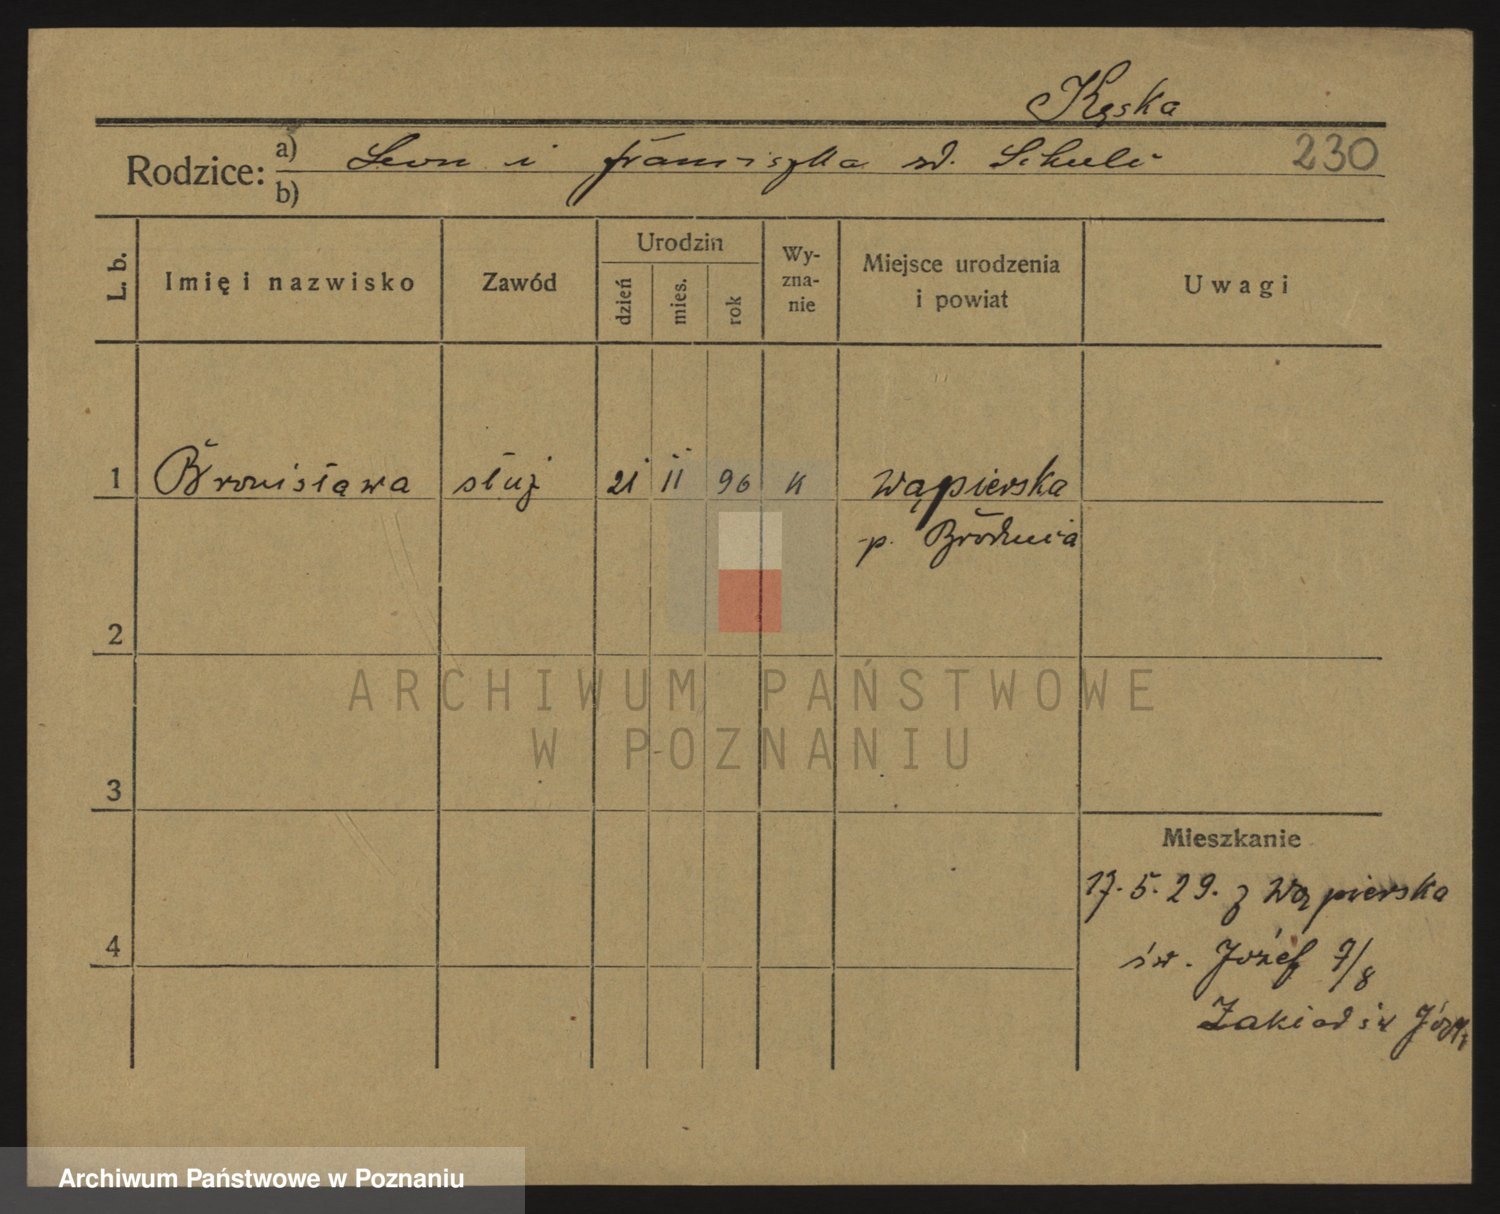 Kęska
Rodzice: a) Leon i Franciszka zd. Schulz 230
b)
L. b. Imię i nazwisko Zawód Urodzin dzień mies. rok Wy-zna-nie Miejsce urodzenia i powiat Uwagi
1 Bronisława służ 21 II 96 k Wąpierska
p. Brodnica
2
ARCHIWUM PAŃSTWOWE
W POZNANIU
3
Mieszkanie
17. 5. 29. z Wąpierska
4 św. Józef 7/8
Zakład św Józefa
Archiwum Państwowe w Poznaniu